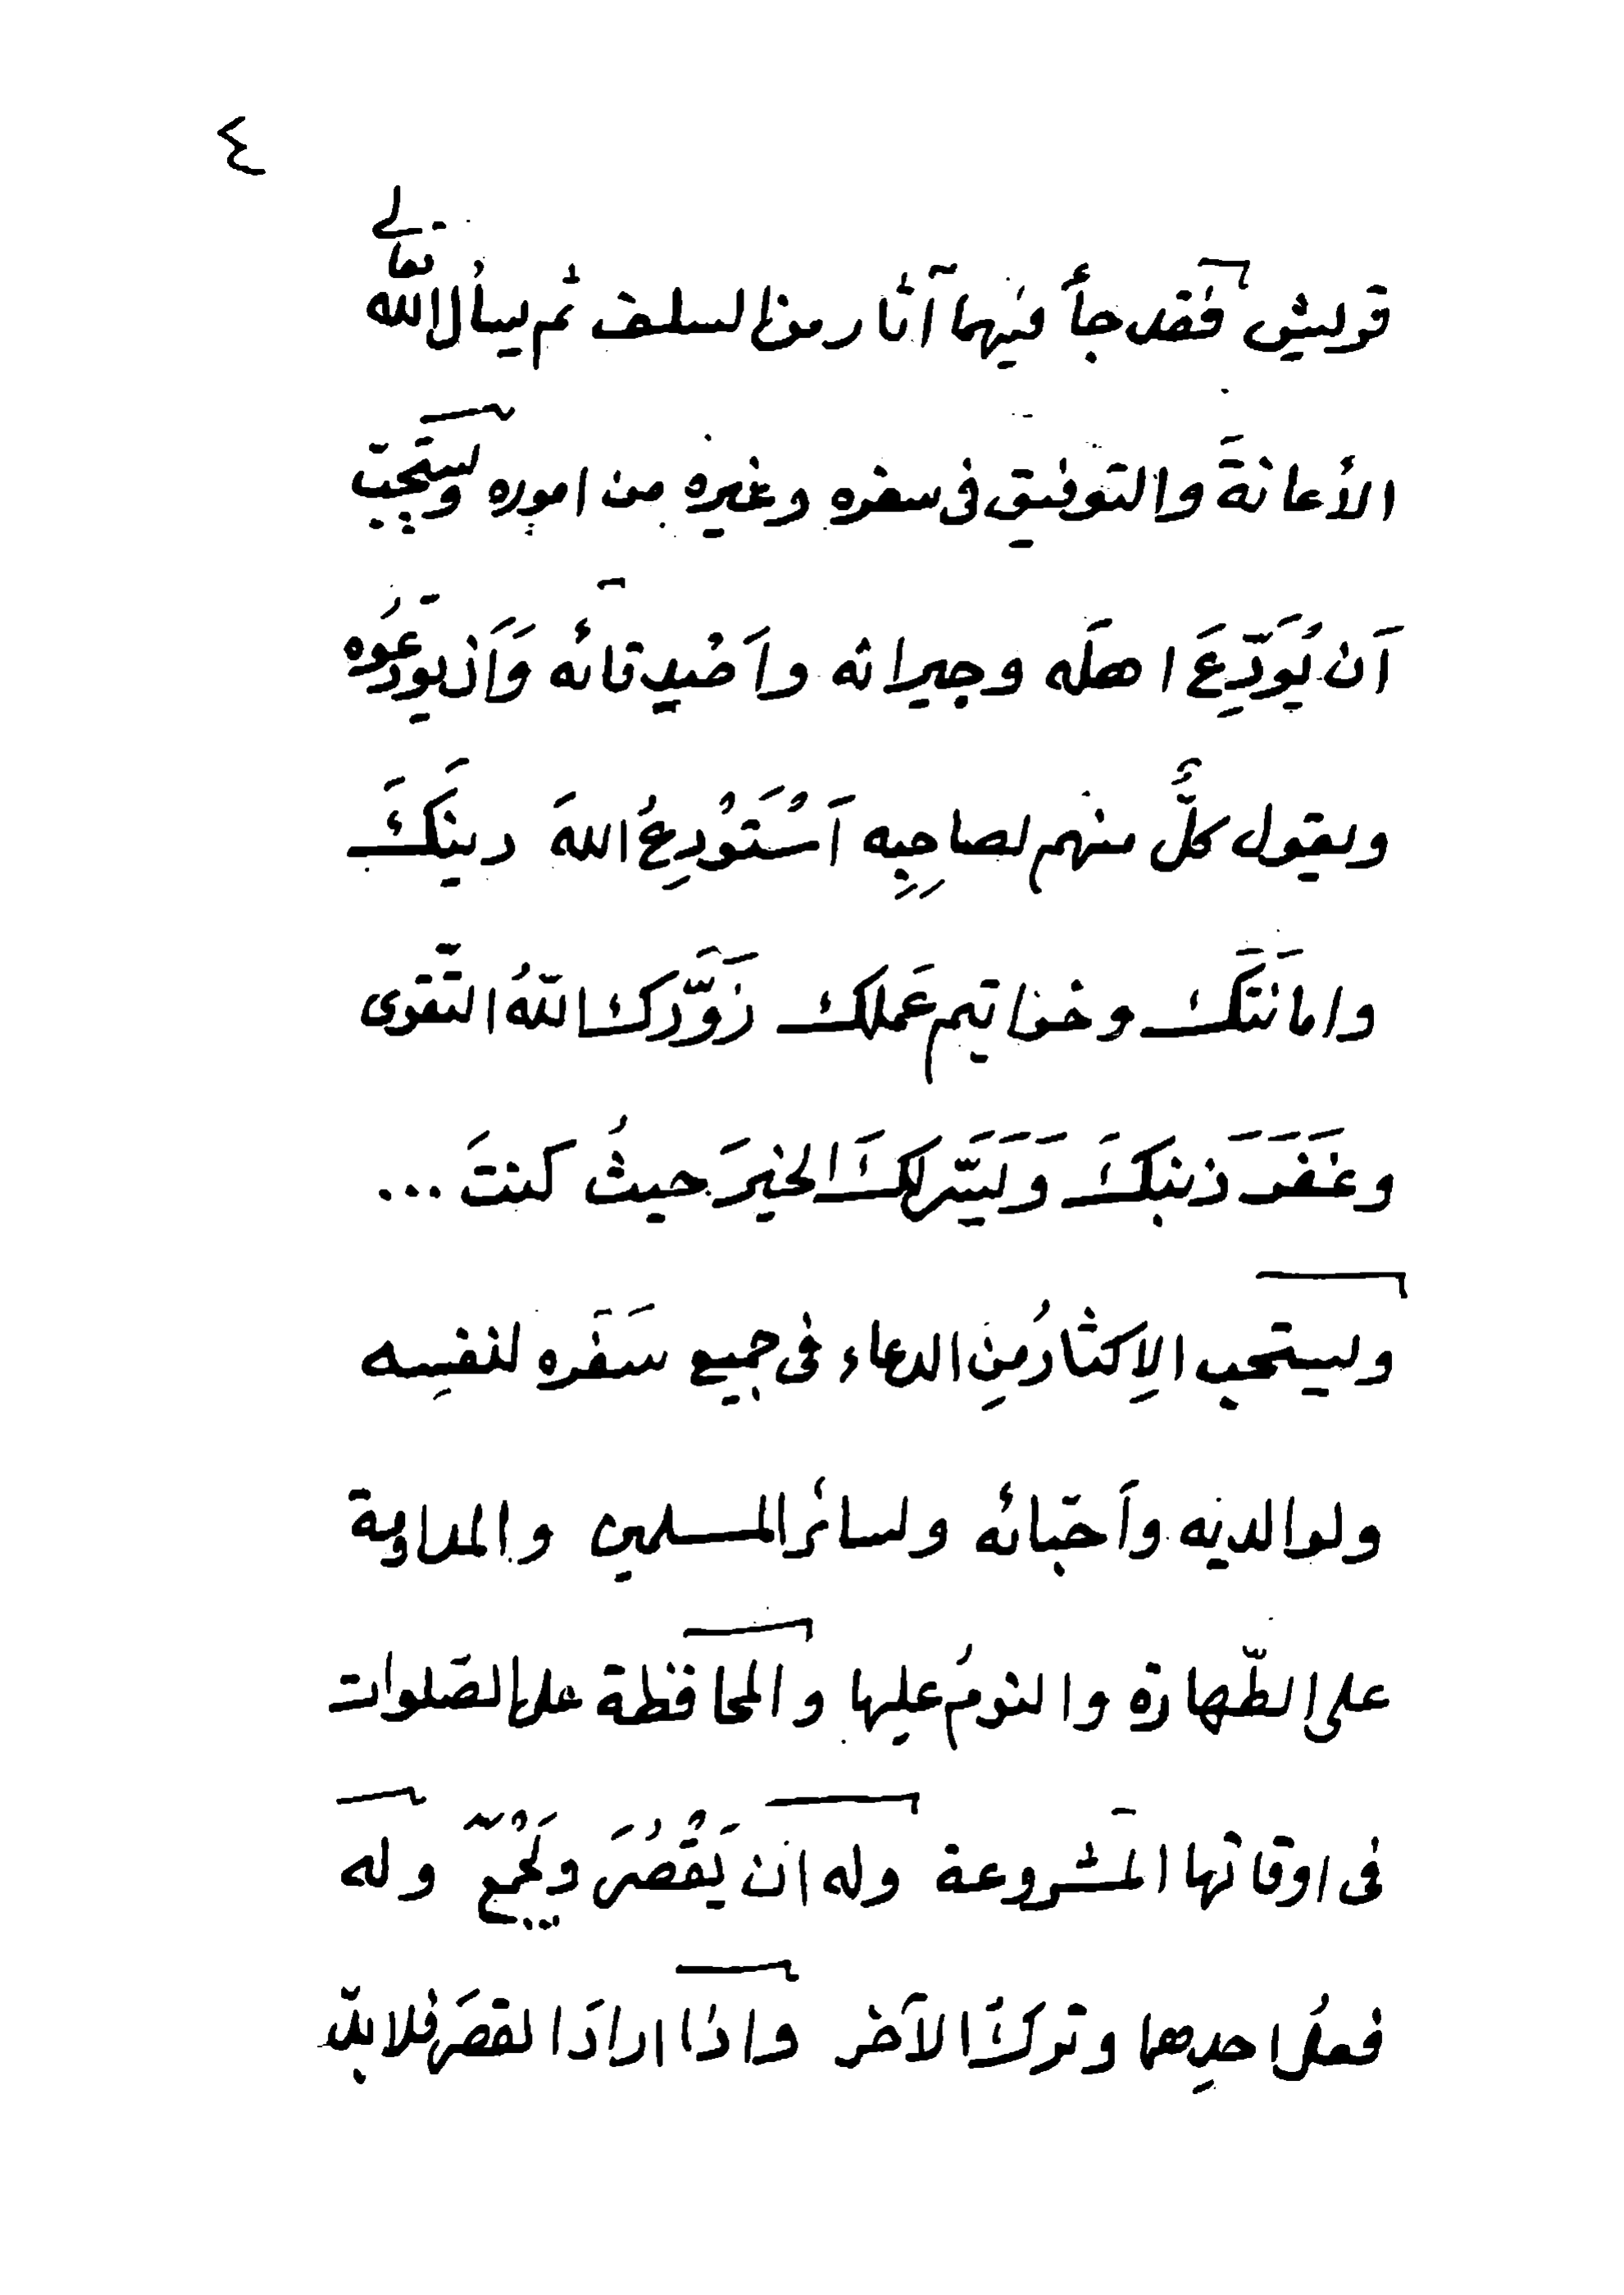 ٤
قريش فقد جأ فيهما آثار من السلف ثم يسأل الله تعالى
الأعانة والتوفيق في سفره وغيره من اموره ويستحبّ
أَن يُوَدِّعَ اهلَه وجيرانه وأَصْدِقائه وَأَن يودعُوه
ويقول كلٌّ منهم لصاحِبِه أَسْتَوْدِعُ اللهَ دينَكَ
وامانَتَكَ وخواتيم عَملك زَوَّدَك اللهُ التّقوى
وغَفَرَ ذنبكَ وَيَسّر لكَ الخيرَ حيثُ كنتَ ...
ويستحب الإكثارُ مِن الدعاء في جميع سَفَره لنفسِه
ولوالديه وأَحبّائه ولسائر المسلمين والمداومة
على الطّهارة والنومُ عليها والمحافظة على الصّلوات
في اوقاتها المشروعة وله ان يَقْصُرَ ويَجْمعَ وله
فعلُ احدِهما وتركَ الآخر واذا ارادَ القصَر فلا بدّ